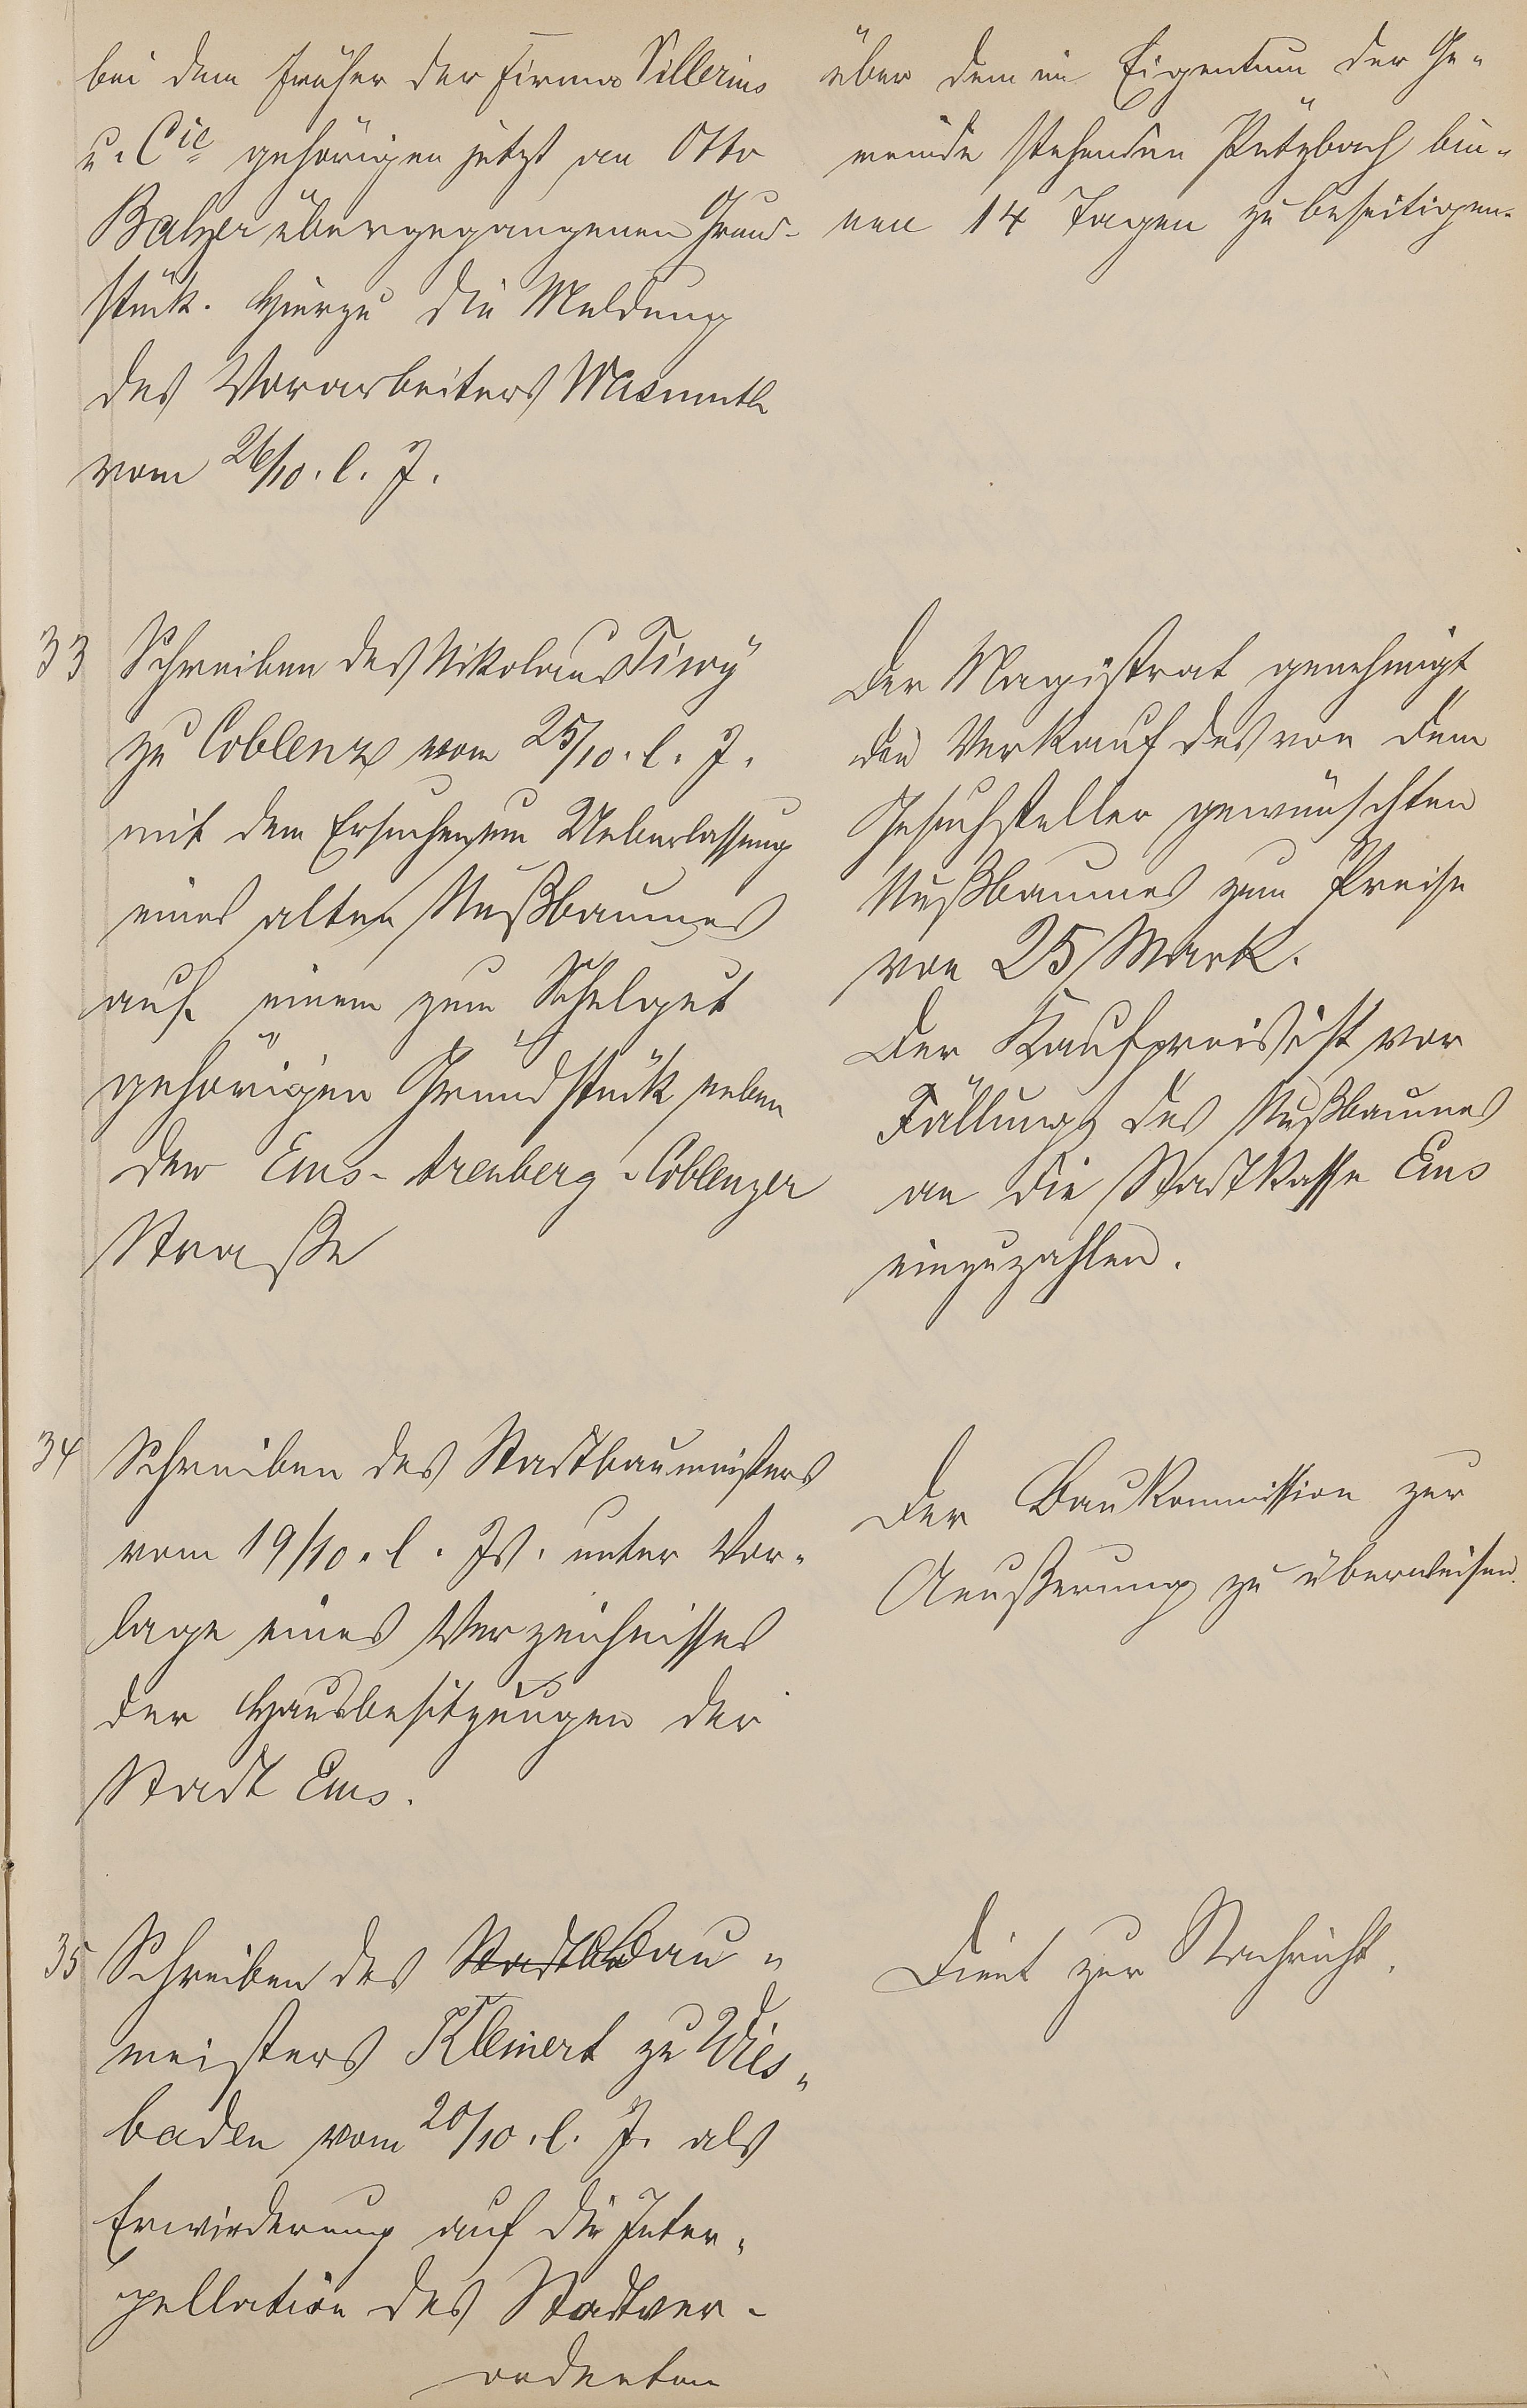 bei dem früher der Firma Sillerius
u. Cie gehörigen jetzt an Otto
Balzer übergegangenen Grund-
stück. Hierzu die Meldung
des Vorarbeiters
vom 26/10. l. J.
über dem im Eigentum der Ge-
meinde stehenden Pützbach bin-
nen 14 Tagen zu beseitigen.
33 Schreiben des Nikolaus
zu Coblenz vom 25/10. l. J.
mit dem Ersuchen um Ueberlassung
eines alten Nußbaumes
auf einem zum
gehörigen Grundstück neben
der Ems-Arenberg-Coblenzer
Straße
Der Magistrat genehmigt
den Verkauf des von dem
Gesuchsteller gewünschten
Nußbaumes zum Preise
von 25 Mark.
Der Kaufpreis ist vor
Fällung des Nußbaumes
an die Stadtkasse Ems
einzuzahlen.
34 Schreiben des Stadtbaumeisters
vom 19/10. l. Js. unter Vor-
lage eines Verzeichnisses
der Hausbesitzungen der
Stadt Ems.
Der Baukommission zur
Aeußerung zu überweisen.
35 Schreiben des Bau-
meisters Kleinert zu Wies-
baden vom 20/10. l. J. als
Erwiderung auf die Inter-
pellation des Stadtver-
ordneten
Dient zur Nachricht.